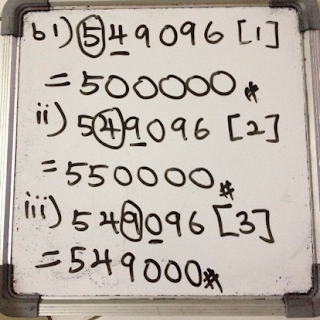 b i) 549096 [1]
= 500000 *
ii) 549096 [2]
= 550000 *
iii) 549096 [3]
= 549000 *